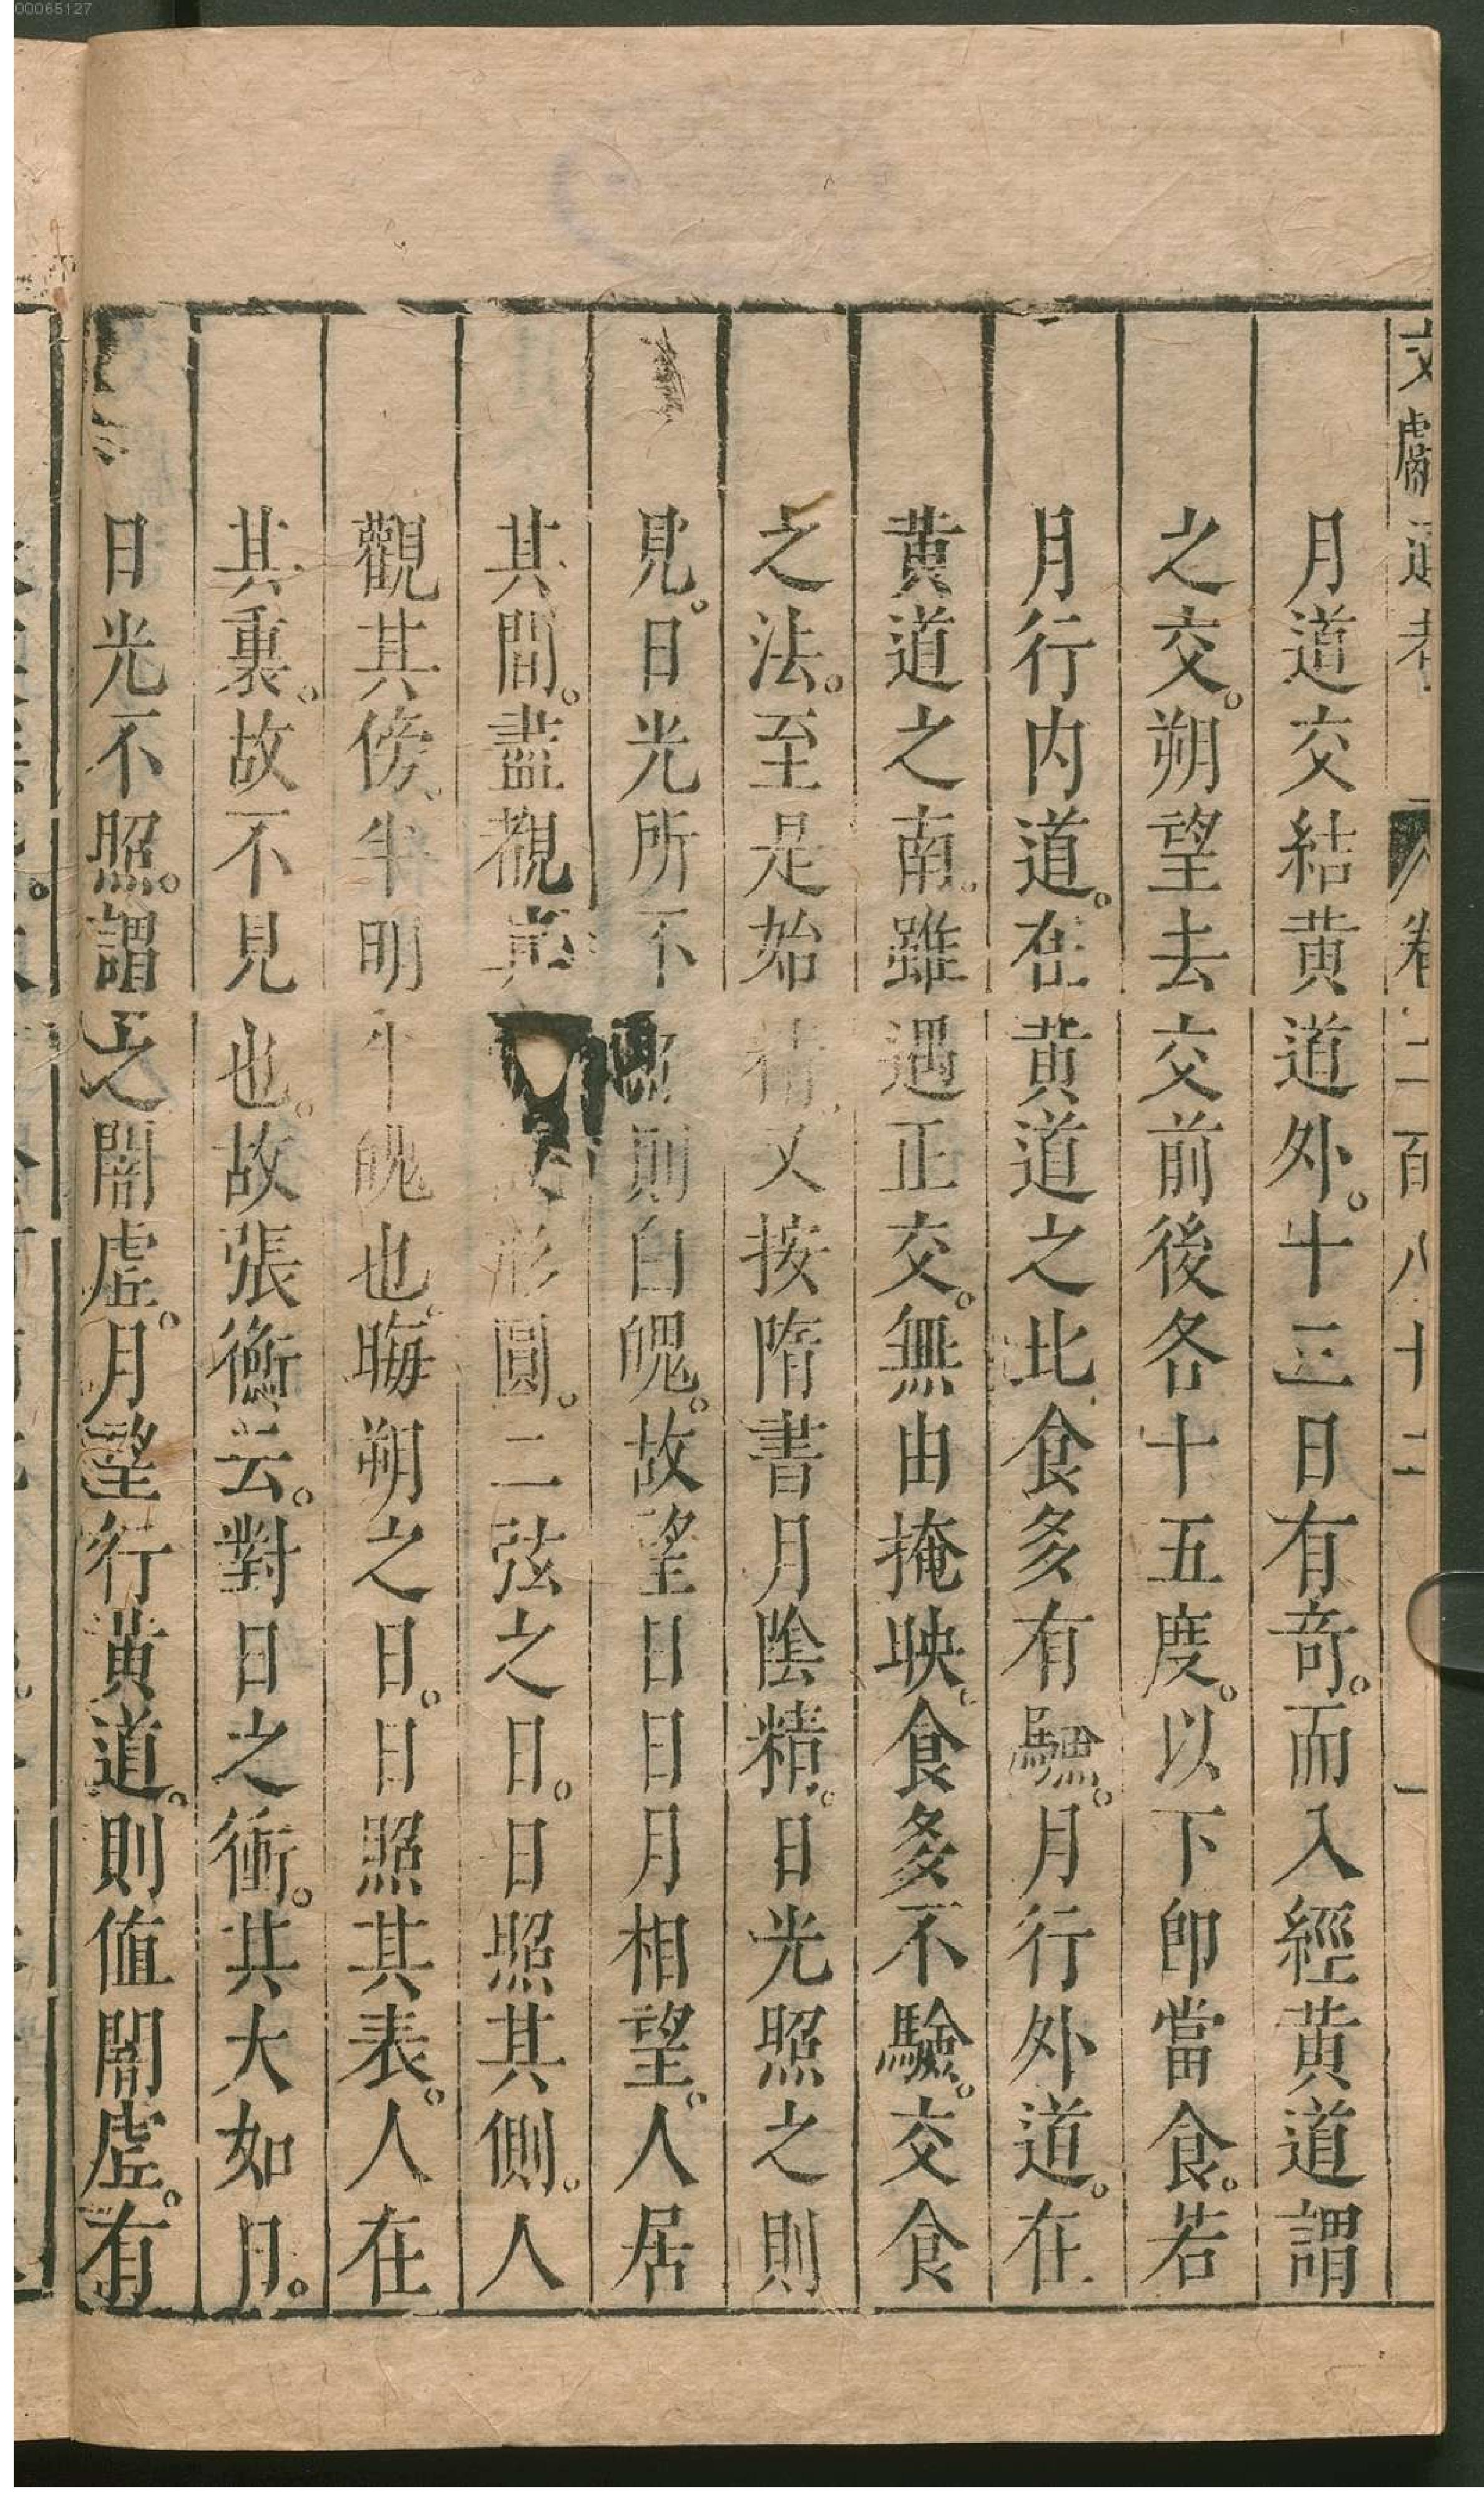 00065127
文獻通考　卷二百八十二　一
月道交結黃道外。十三日有奇。而入經黃道謂
之交。朔望去交前後各十五度。以下卽當食。若
月行內道。在黃道之北食多有驗。月行外道。在
黃道之南。雖遇正交。無由掩映。食多不驗。交食
之法。至是始精。又按隋書月陰精。日光照之則
見。日光所不照則曰魄。故望日日月相望。人居
其間。盡覩其形圓。二弦之日。日照其側。人
觀其傍。半明半魄也。晦朔之日。日照其表。人在
其裏。故不見也。故張衡云。對日之衝。其大如月。
日光不照。謂之闇虛。月望行黃道。則值闇虛。有